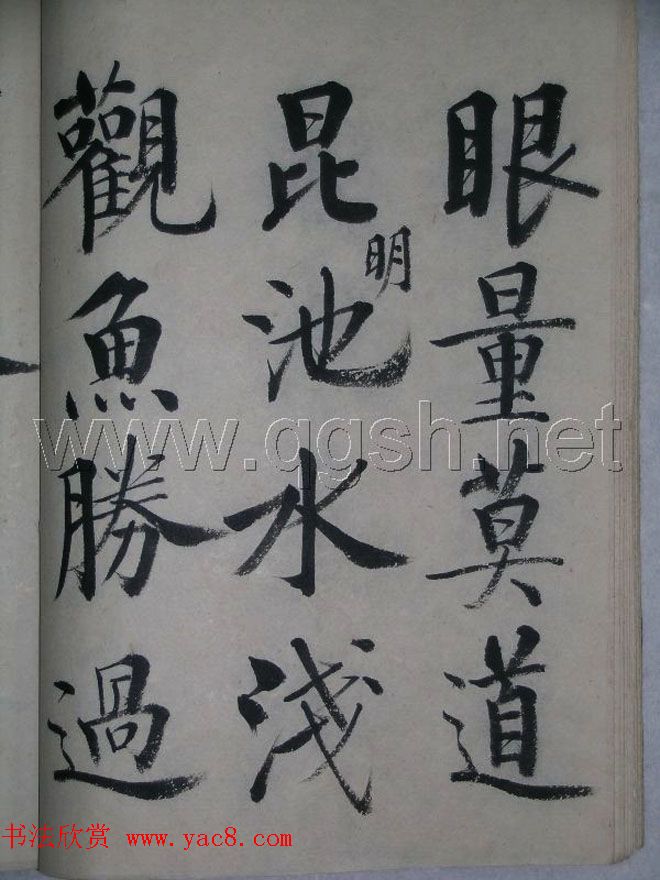 眼量莫道
昆明池水淺
觀魚勝過
www.qgsh.net
书法欣赏 www.yac8.com